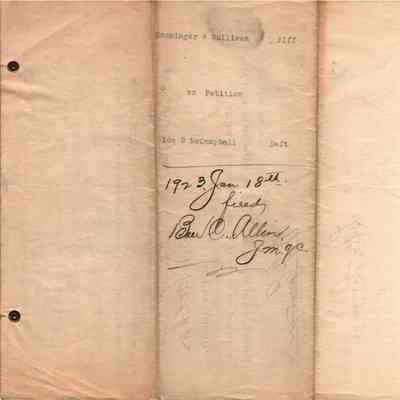 & Sullivan Plff
vs Petition
Ide D McCampbell Deft
1923, Jan 18th
filed,
Ben C. Allin
J.M.G.C.